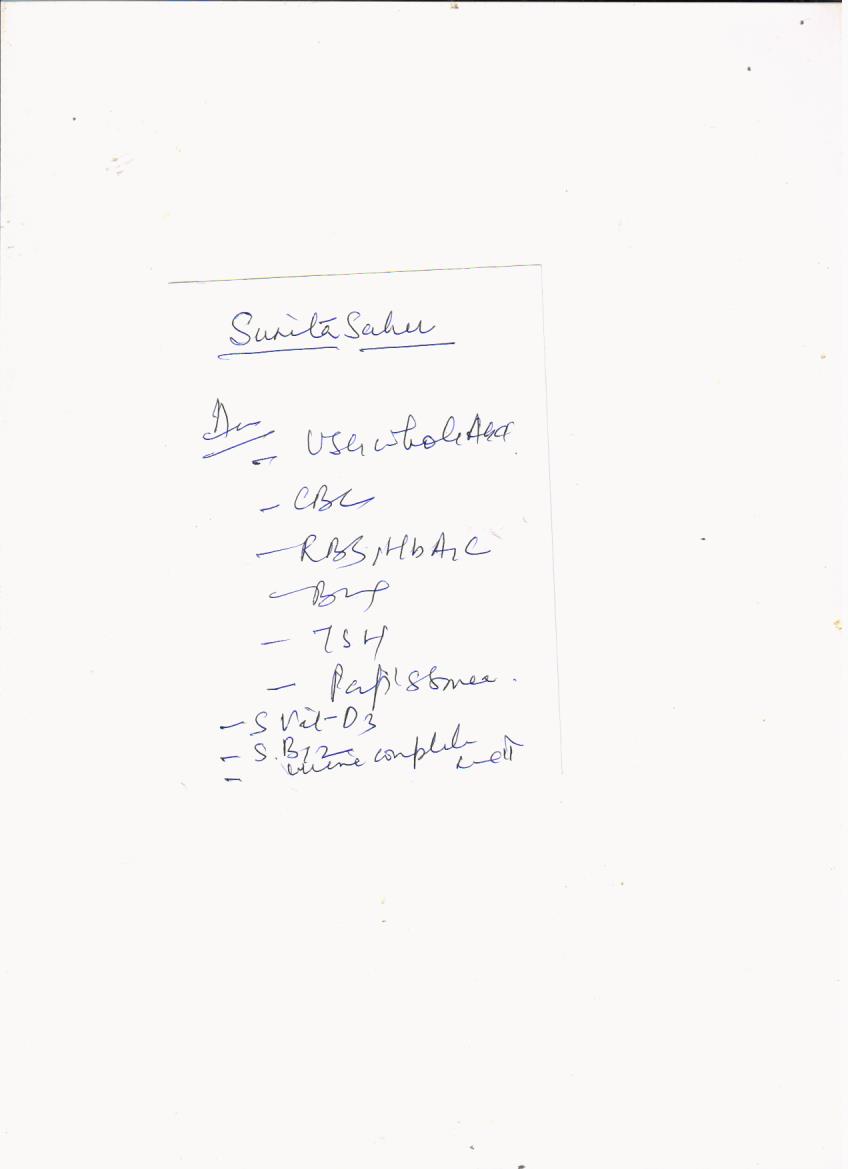 Sunita Sahu
- USG whole Abd
- CBC
- RBS, HbA1C
- TSH
- Pap's Smear.
- S Vit-D3
- S. B12
- urine complete